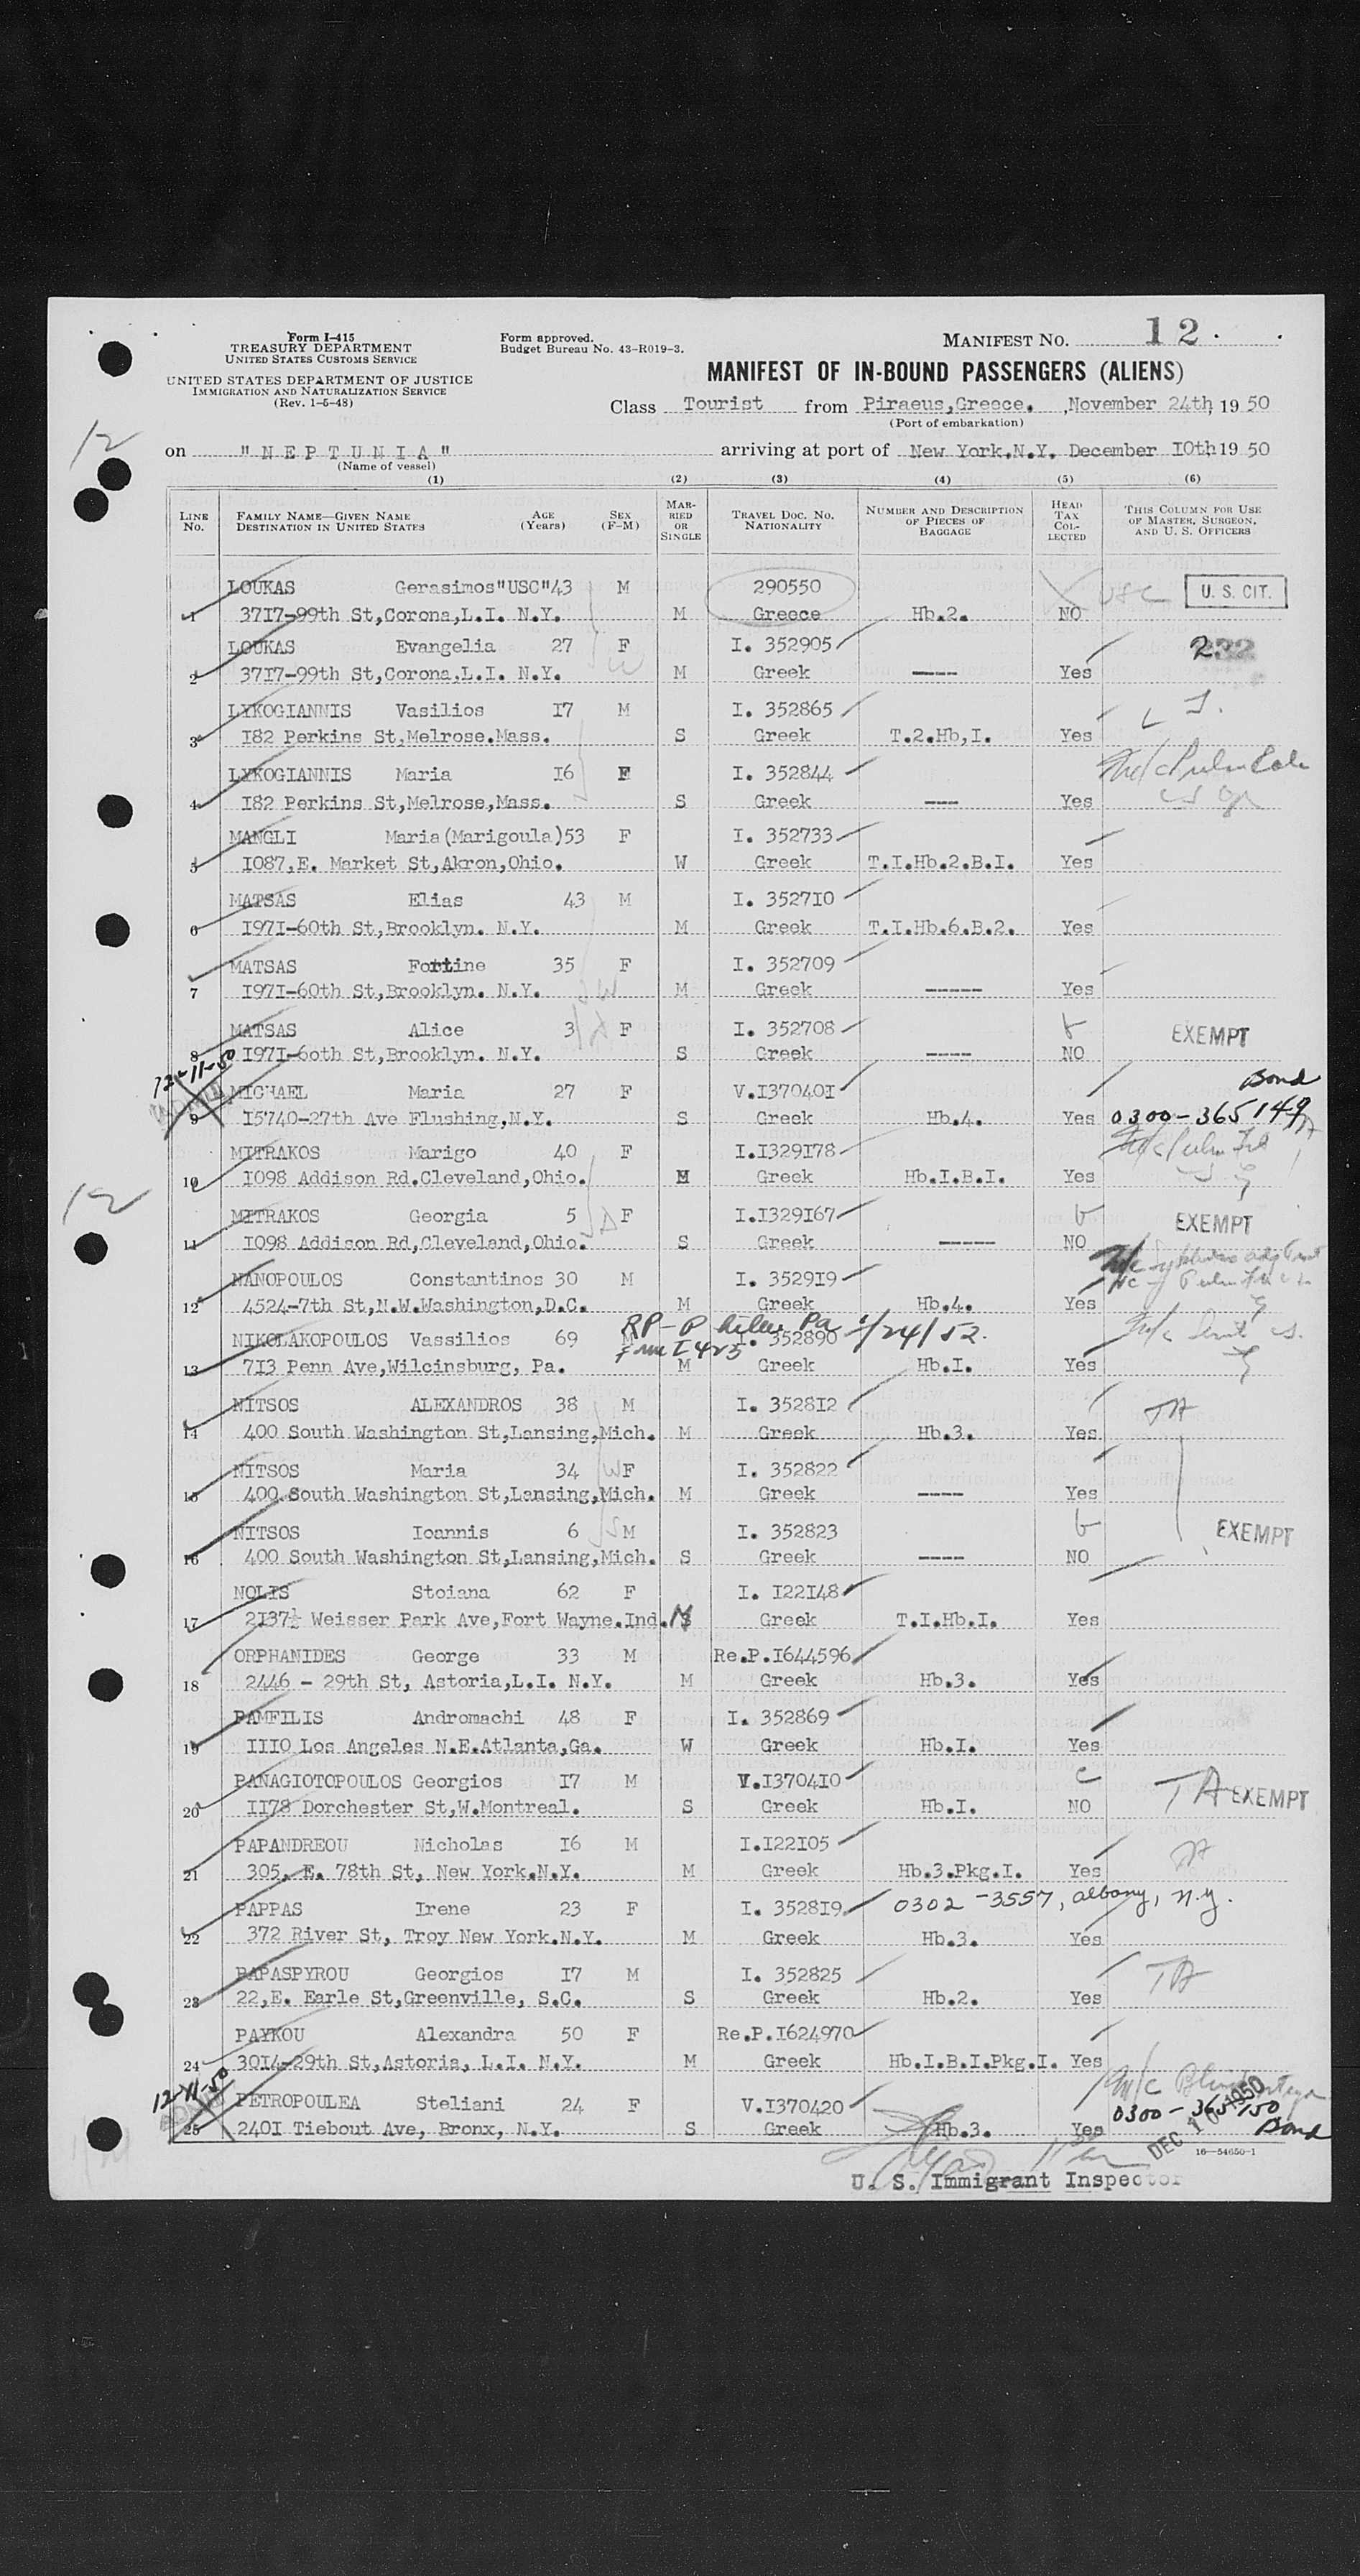 Form I-415
TREASURY DEPARTMENT
UNITED STATES CUSTOMS SERVICE
UNITED STATES DEPARTMENT OF JUSTICE
IMMIGRATION AND NATURALIZATION SERVICE
(Rev. 1-5-48)
Form approved.
Budget Bureau No. 43-R019-3.
MANIFEST NO. 12.
MANIFEST OF IN-BOUND PASSENGERS (ALIENS)
Class Tourist from Piraeus,Greece. ,November 24th, 19 50
(Port of embarkation)
12
on "NEPTUNIA" arriving at port of New York.N.Y. December 10th 19 50
(Name of vessel)
(1) (2) (3) (4) (5) (6)
LINE No. FAMILY NAME—GIVEN NAME DESTINATION IN UNITED STATES AGE (Years) SEX (F-M) MARRIED OR SINGLE TRAVEL DOC. NO. NATIONALITY NUMBER AND DESCRIPTION OF PIECES OF BAGGAGE HEAD TAX COLLECTED THIS COLUMN FOR USE OF MASTER, SURGEON, AND U. S. OFFICERS
LOUKAS Gerasimos"USC"43 M 290550 USC U. S. CIT.
1 3717-99th St,Corona,L.I. N.Y. M Greece Hb.2. NO
LOUKAS Evangelia 27 F I. 352905 232
2 3717-99th St,Corona,L.I. N.Y. W M Greek ---- Yes
LYKOGIANNIS Vasilios 17 M I. 352865
3 182 Perkins St,Melrose.Mass. S Greek T.2.Hb,I. Yes
LYKOGIANNIS Maria 16 F I. 352844
4 182 Perkins St,Melrose,Mass. S Greek --- Yes
MANGLI Maria(Marigoula)53 F I. 352733
5 1087,E. Market St,Akron,Ohio. W Greek T.I.Hb.2.B.I. Yes
MATSAS Elias 43 M I. 352710
6 1971-60th St,Brooklyn. N.Y. M Greek T.I.Hb.6.B.2. Yes
MATSAS Fortine 35 F I. 352709
7 1971-60th St,Brooklyn. N.Y. W M Greek ----- Yes
MATSAS Alice 3 F I. 352708 EXEMPT
8 1971-6oth St,Brooklyn. N.Y. S Greek ---- NO
12-11-50
MICHAEL Maria 27 F V.1370401 Bond
9 15740-27th Ave Flushing,N.Y. S Greek Hb.4. Yes 0300-365149
MITRAKOS Marigo 40 F I.1329178
10 1098 Addison Rd.Cleveland,Ohio. M Greek Hb.I.B.I. Yes
12
MITRAKOS Georgia 5 F I.1329167 EXEMPT
11 1098 Addison Rd,Cleveland,Ohio. S Greek ----- NO
NANOPOULOS Constantinos 30 M I. 352919
12 4524-7th St,N.W.Washington,D.C. M Greek Hb.4. Yes
RP-Phila Pa 1/24/52.
NIKOLAKOPOULOS Vassilios 69 M I. 352890
13 713 Penn Ave,Wilcinsburg, Pa. M Greek Hb.I. Yes
NITSOS ALEXANDROS 38 M I. 352812 TA
14 400 South Washington St,Lansing,Mich. M Greek Hb.3. Yes
NITSOS Maria 34 W F I. 352822
15 400 South Washington St,Lansing,Mich. M Greek ---- Yes
NITSOS Ioannis 6 S M I. 352823 EXEMPT
16 400 South Washington St,Lansing,Mich. S Greek ---- NO
NOLIS Stoiana 62 F I. 122148
17 2137½ Weisser Park Ave,Fort Wayne.Ind. M Greek T.I.Hb.I. Yes
ORPHANIDES George 33 M Re.P.1644596
18 2446 - 29th St, Astoria,L.I. N.Y. M Greek Hb.3. Yes
PAMFILIS Andromachi 48 F I. 352869
19 1110 Los Angeles N.E.Atlanta,Ga. W Greek Hb.I. Yes
PANAGIOTOPOULOS Georgios 17 M V.1370410 TA EXEMPT
20 1178 Dorchester St,W.Montreal. S Greek Hb.I. NO
PAPANDREOU Nicholas 16 M I.122105 TA
21 305, E. 78th St, New York.N.Y. M Greek Hb.3.Pkg.I. Yes
PAPPAS Irene 23 F I. 352819 0302-3557, Albany, N.Y.
22 372 River St, Troy New York.N.Y. M Greek Hb.3. Yes
PAPASPYROU Georgios 17 M I. 352825 TA
23 22,E. Earle St,Greenville, S.C. S Greek Hb.2. Yes
PAYKOU Alexandra 50 F Re.P.1624970
24 3014-29th St,Astoria, L.I. N.Y. M Greek Hb.I.B.I.Pkg.I. Yes
12-11-50
PETROPOULEA Steliani 24 F V.1370420 0300-365150
25 2401 Tiebout Ave, Bronx, N.Y. S Greek Hb.3. Yes Bond
DEC 10 1950
16-54650-1
U. S. Immigrant Inspector